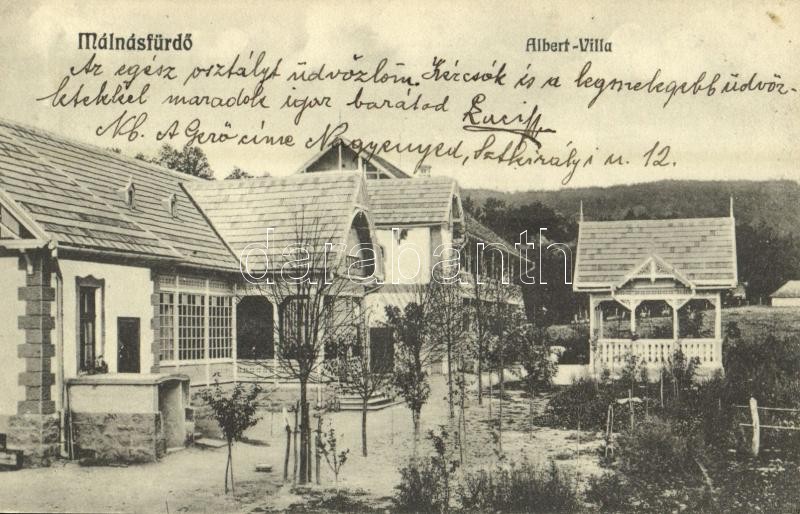 Málnásfürdő
Albert-Villa
Az egész osztályt üdvözlöm. Kércsók és a legmelegebb üdvöz-
letekkel maradok igaz barátod Laci
Nb. A Gerő címe Nagyenyed, Sztkirályi u. 12.
darabanth